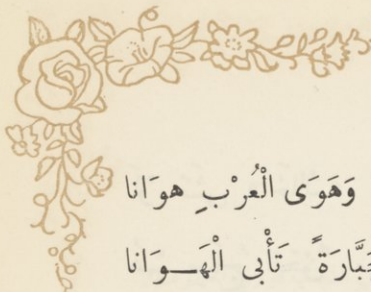 وَهَوَى الْعُرْبِ هوَانا
جَبَّارَةً تَأْبى الْهَـــوَانا